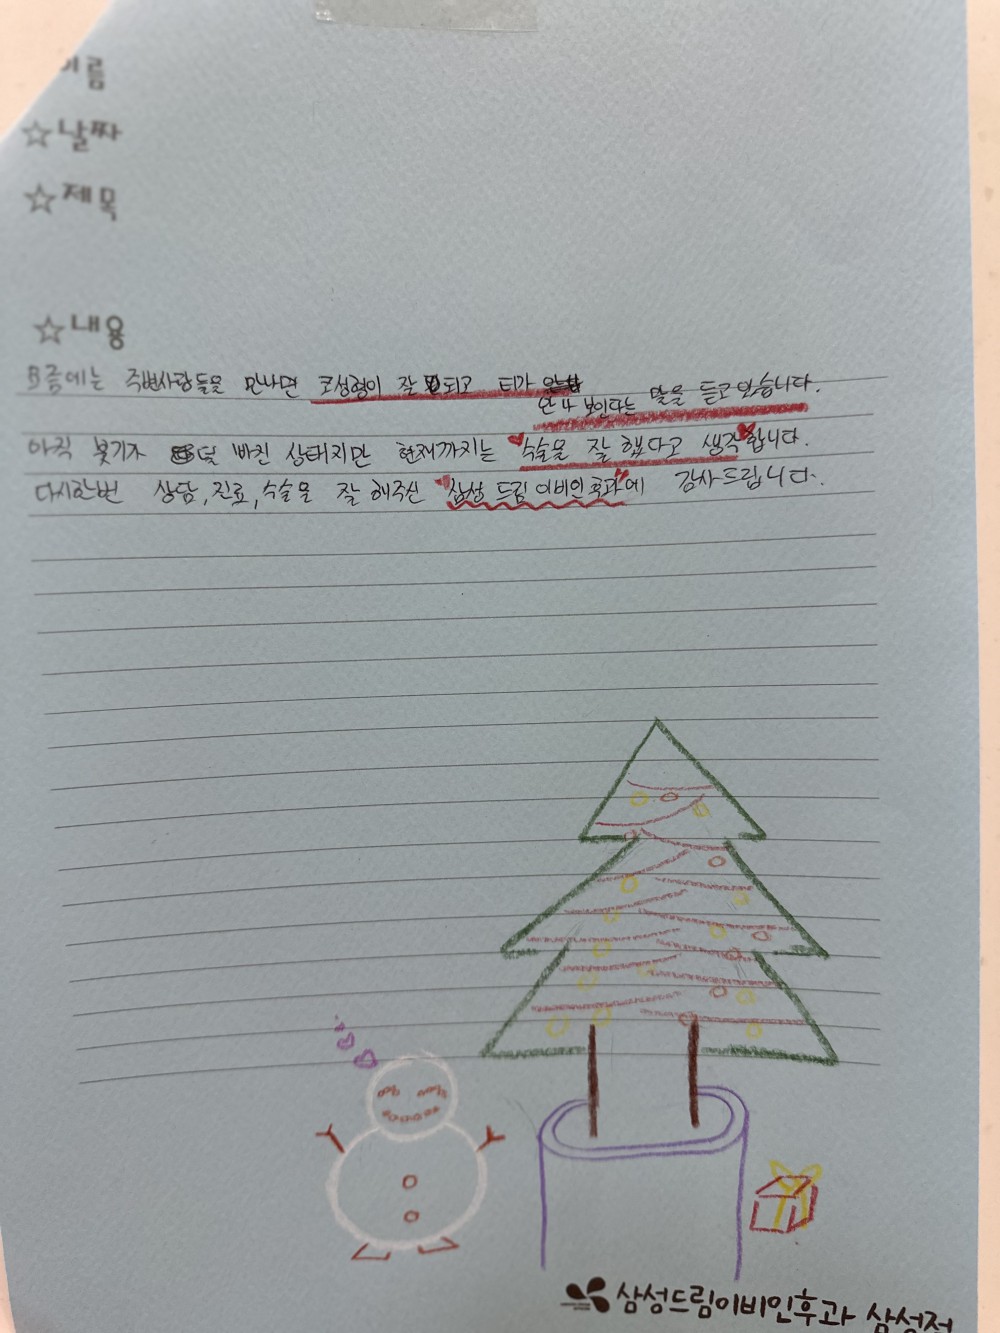 이름
☆날짜
☆제목
☆내용
요즘에는 주변사람들을 만나면 코성형이 잘 되고 티가
안 나 보인다는 말을 듣고 있습니다.
아직 붓기가 덜 빠진 상태지만 현재까지는 ♥수술을 잘 했다고 생각♥합니다.
다시한번 상담, 진료, 수술을 잘 해주신 "삼성 드림 이비인후과"에 감사드립니다.
삼성드림이비인후과 삼성점